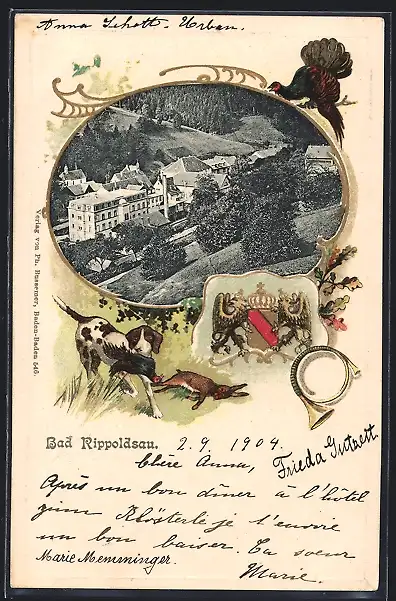 Anna Schott - Urban.
Verlag von Ph. Bussemer, Baden-Baden 546.
Bad Rippoldsau. 2.9.1904.
Frieda Gutzett
Chère Anna,
Après un bon dîner à l'hôtel
zum Klösterle je t'envoie
un bon baiser. Ta soeur
Marie Memminger. Marie.